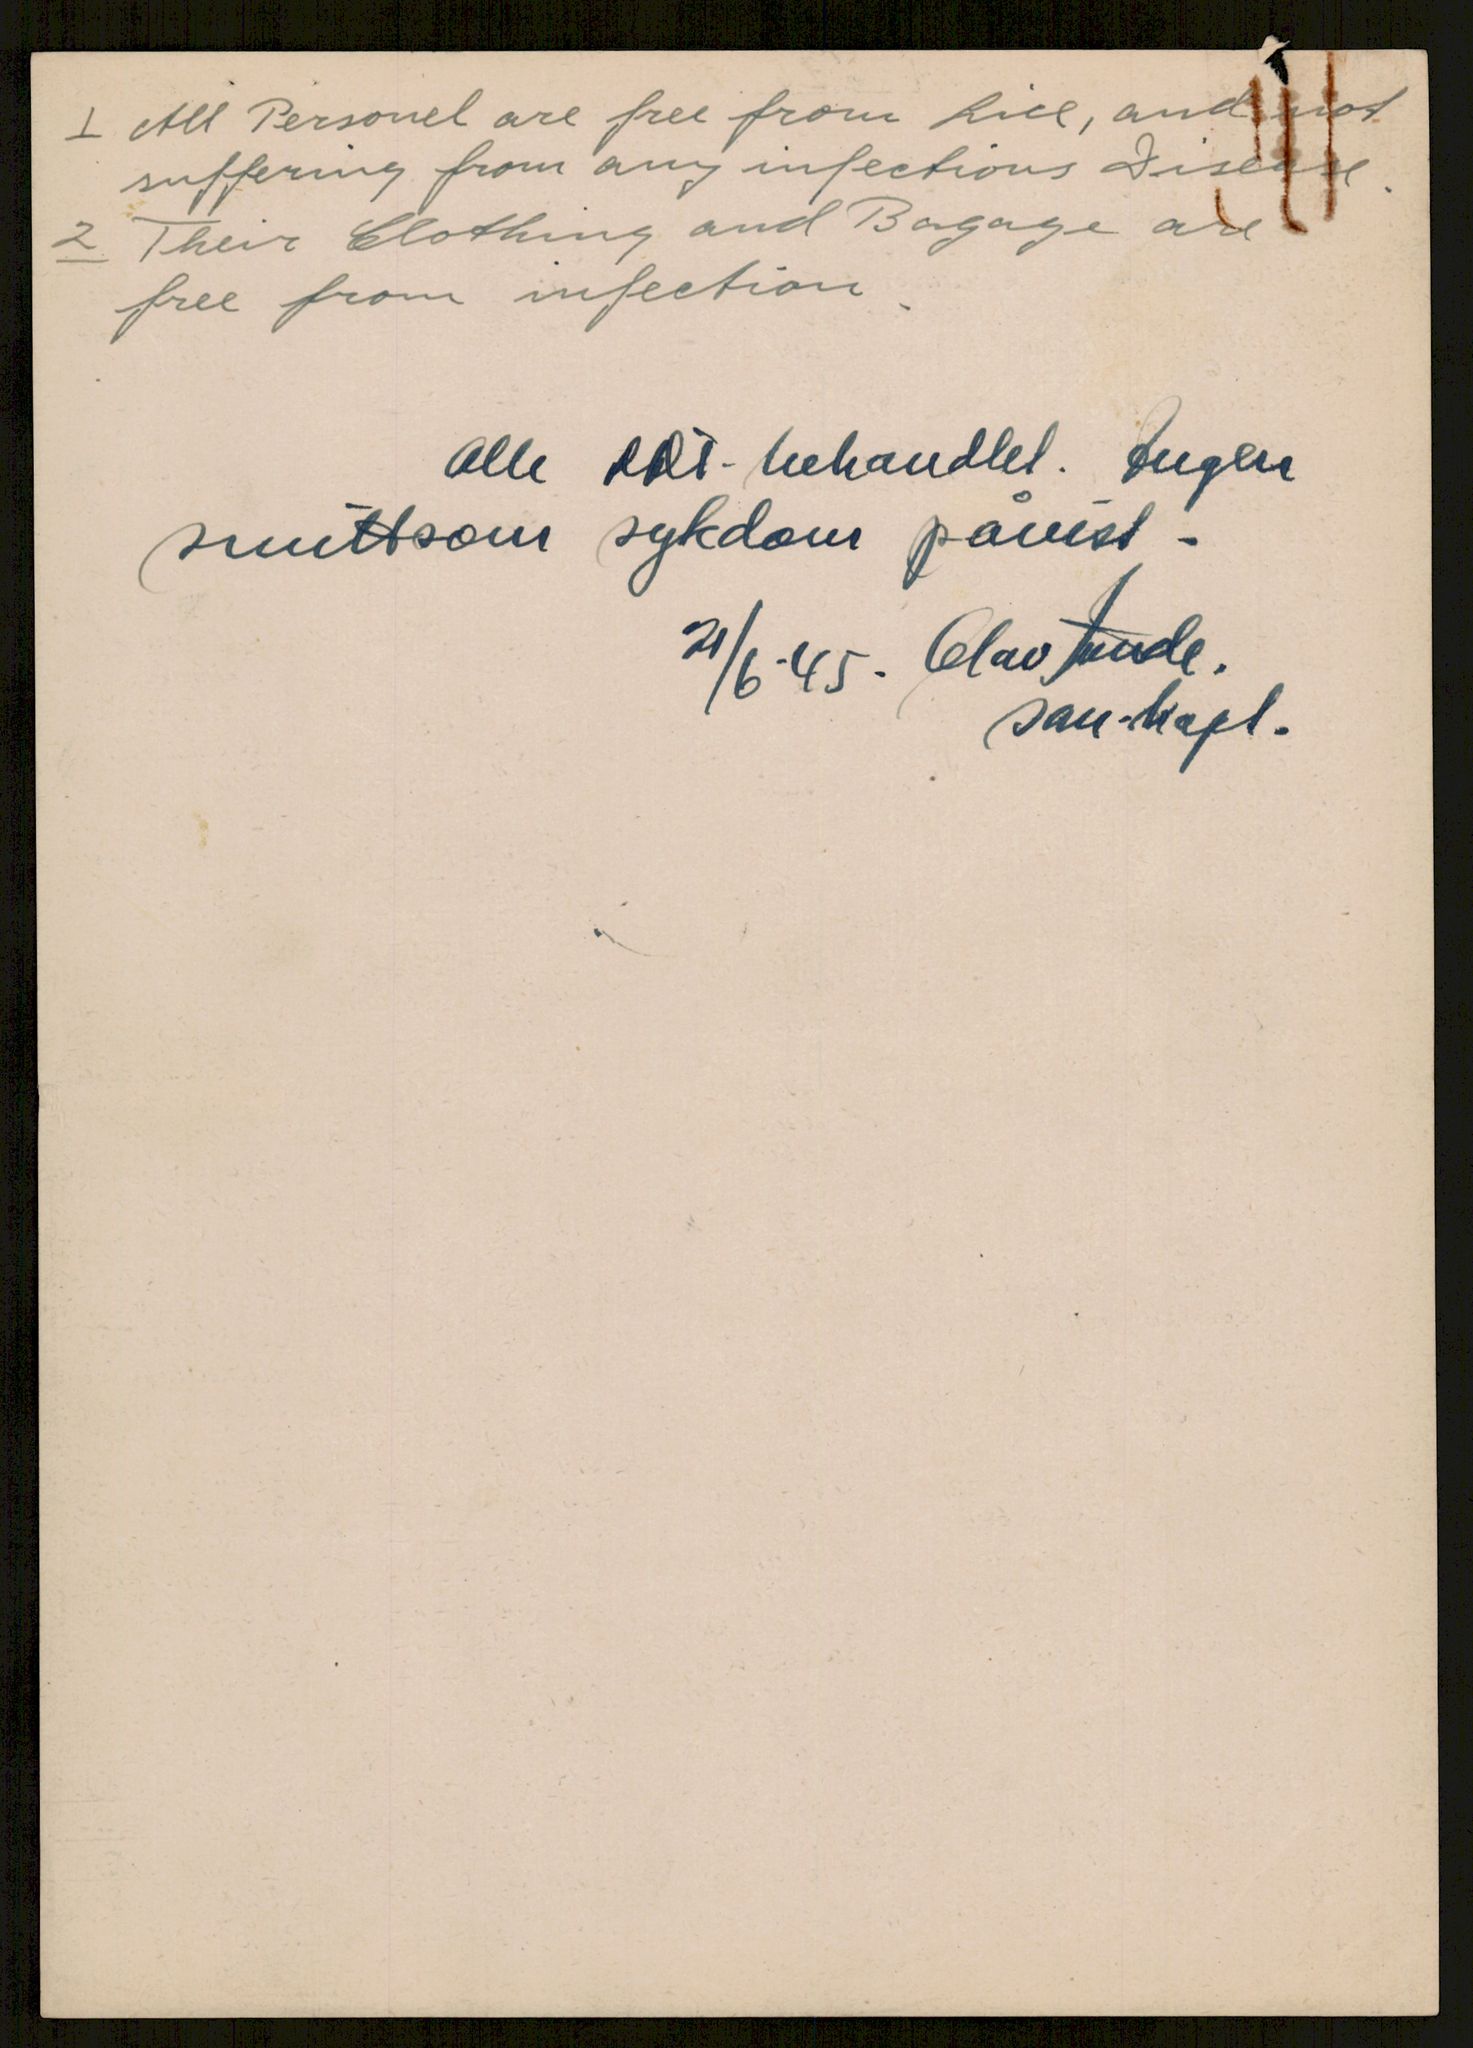 1 All Personel are free from Lice, and not
suffering from any infectious Disease.
2 Their Clothing and Bagage are
free from infection.
Alle DDT-behandlet. Ingen
smittsom sykdom påvist -
21/6-45. Olav
san.kapt.